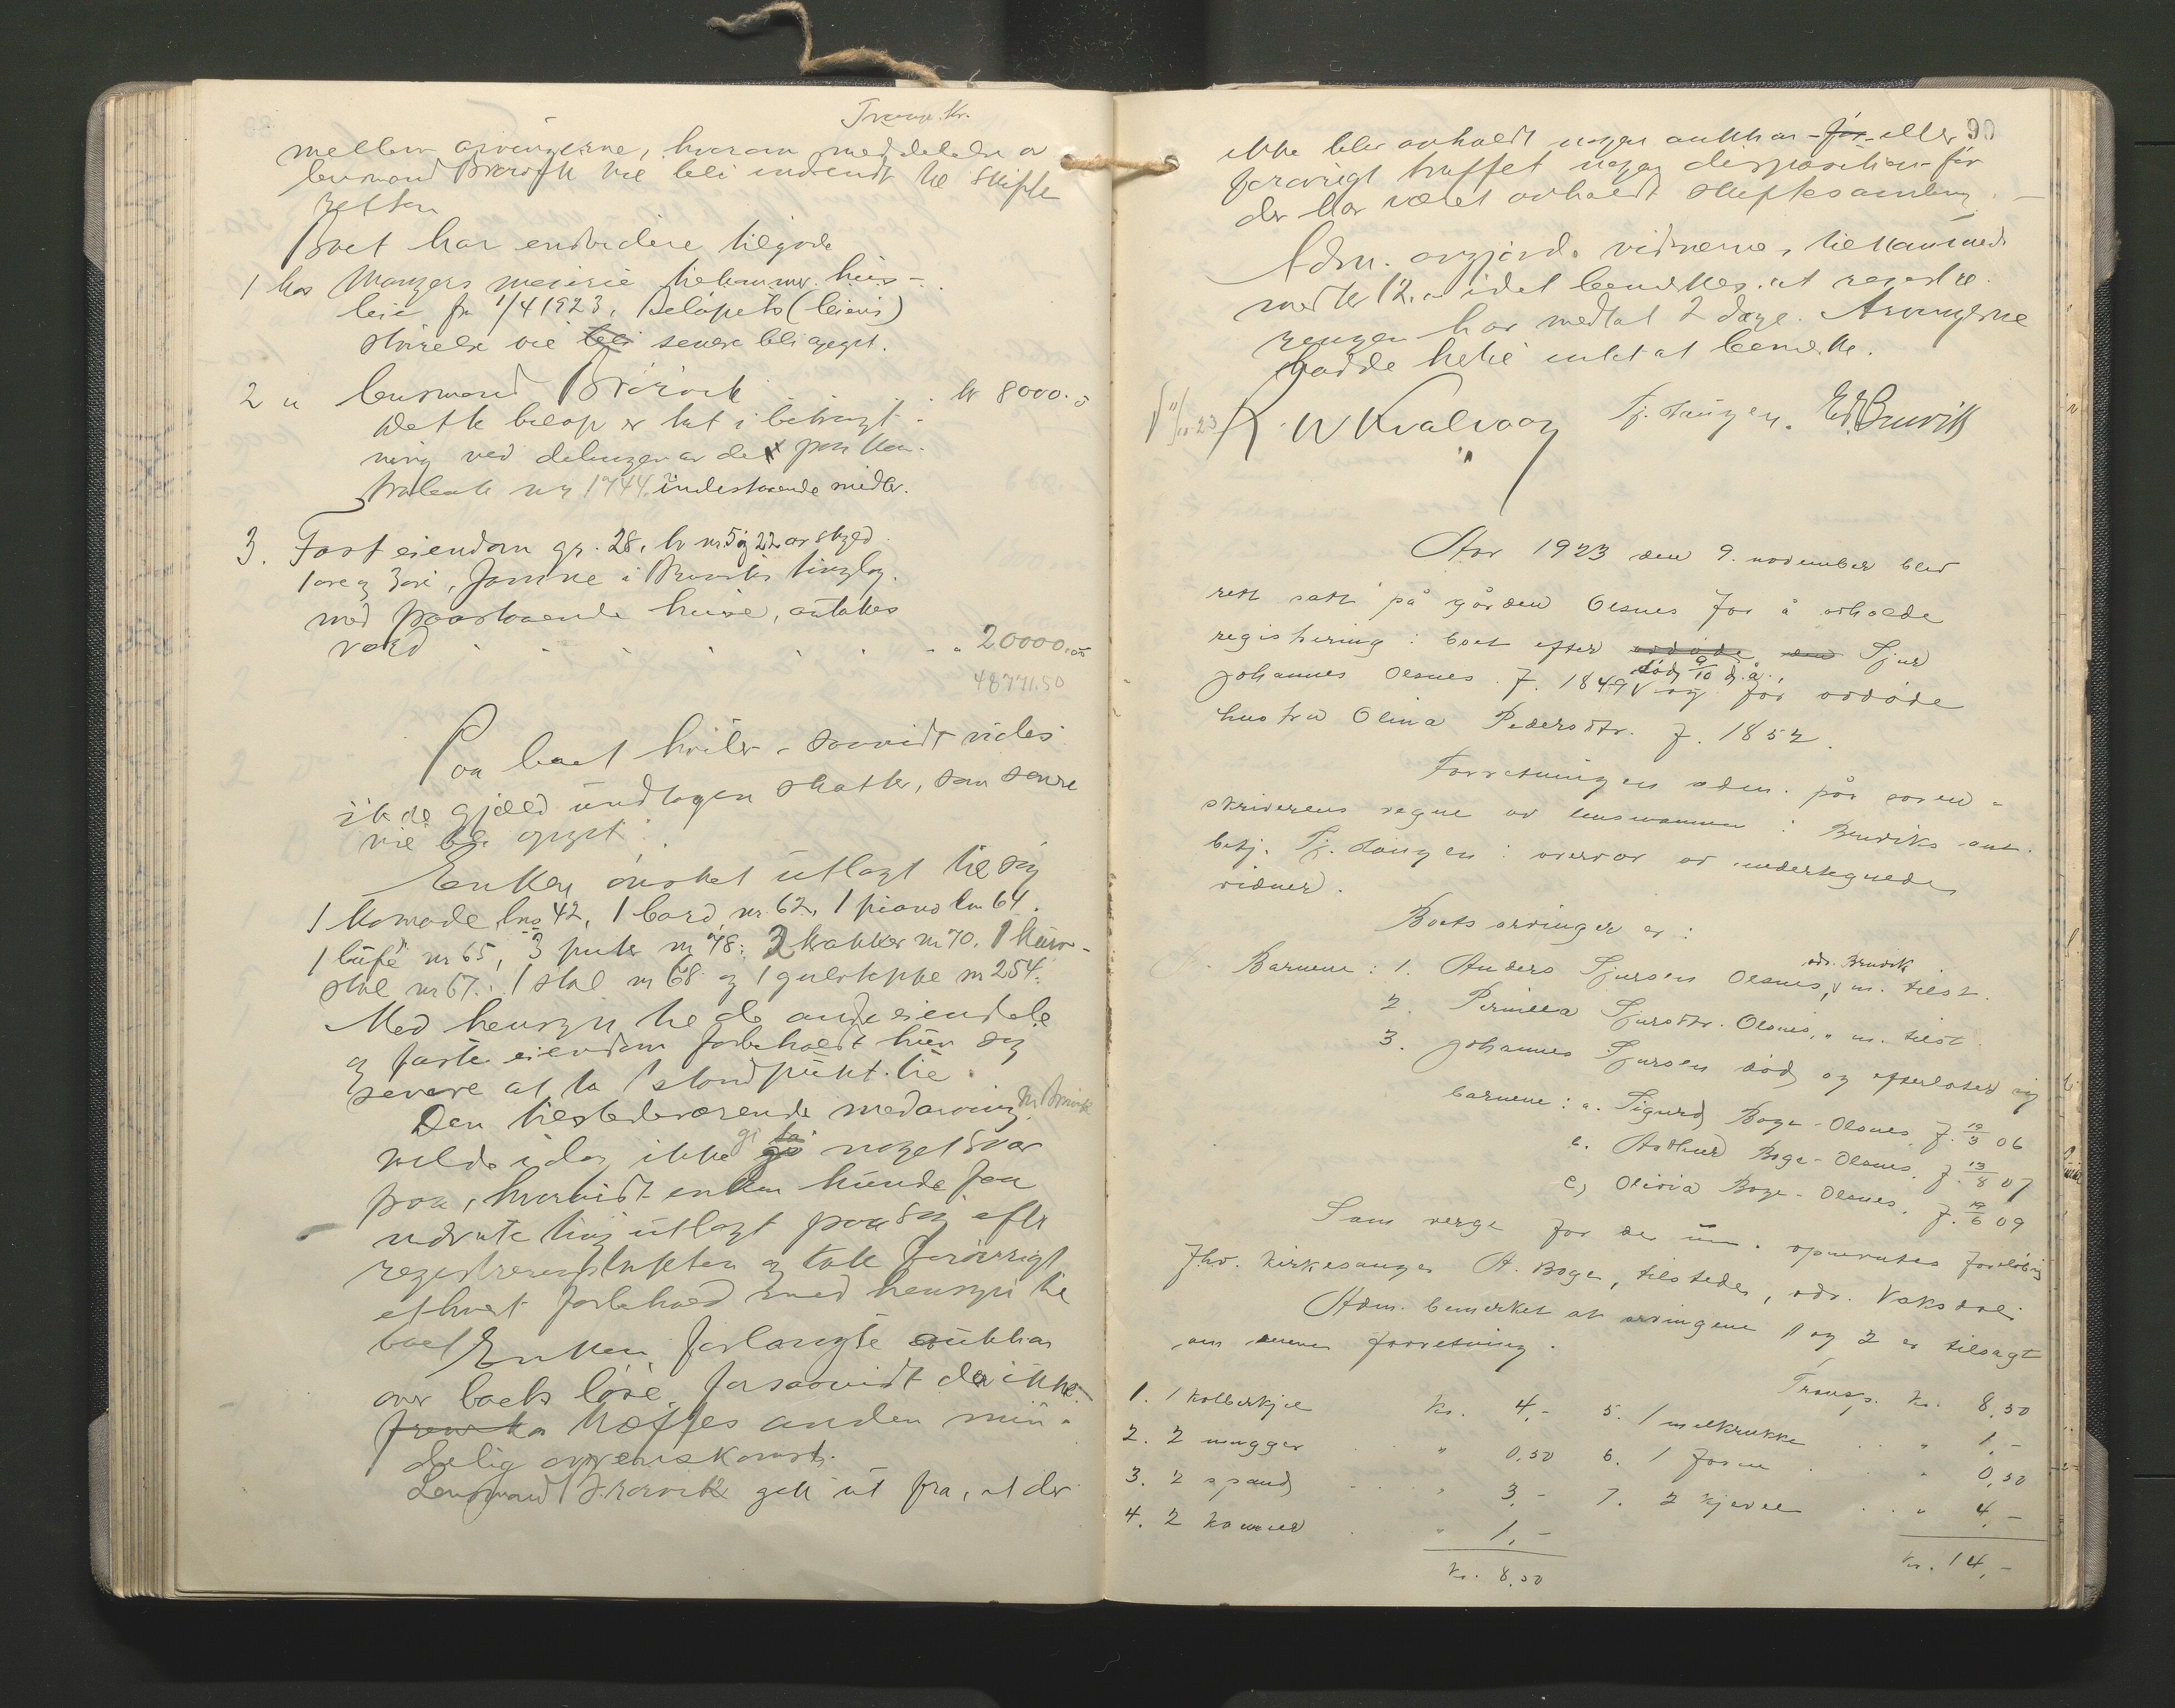 Transp. Kr.
mellem arvingerne, hvorom meddelelse av
lensmand Brørvik vil bli indsendt til skifte
retten
Boet har endvidere tilgode
1 hos Mangers meieri tilkommer hus-
leie fra 1/4 1923. Beløpets (leiens)
størelse vil bli senere bli opgit.
2 " lensmand Brørvik kr 8000.
Dette beløp er tat i betragt-
ning ved delingen av det paa kon-
trabok nr 1744 indestaaende midler.
3. Fast eiendom gr. 28, br nr 5 og 22 av skyld
1 øre og 3 øre, Jamne i Bruviks tinglag.
med paastaaende huse, antakes
værd 20000.00
48771.50
Paa boet hviler saavidt vides
ikke gjæld undtagen skatter, som senere
vil bli opgit.
Enken ønsket utlagt til sig
1 komode lnr 42, 1 bord nr. 62, 1 piano lnr 64.
1 bufe nr 65, 3 puter nr 48: 2 krakker nr 70. 1 kurv-
stol nr 67. 1 stol nr 68 og 1 gulvteppe nr 254.
Med hensyn til de andre eiendele
og faste eiendom forbeholdt hun sig
senere at ta standpunkt til.
Den tilstedeværende medarving Nr Bruvik
vilde idag ikke gi noget svar
paa, hvorvidt enken kunde faa
nævnte ting utlagt paa sig efter
registreringstaksten og tok forøvrigt
ethvert forbehold med hensyn til
boet
Enken forlangte auktion
over boets løsøre, forsaavidt der ikke
træffes anden min-
delig overenskomst.
Lensmand Brørvik gik ut fra, at der
90
ikke blev avholdt nogen auktion før eller
forøvrigt truffet nogen disposition før
der har været avholdt skiftesamling.
Adm. avgjord. vidnerne tilkommed
med kr 12. idet bemerkes. at registre
ringen har medtat 2 dage. Arvingerne
hadde heller intet at bemerke.
K. W Kvalvaag Tj. Laugen. Ed. Bruvik
Aar 1923 den 9. november blev
rett satt på gården Olsnes for å avholde
registrering i boet efter avdøde den Sjur
Johannes Olsnes f. 1849 død 9/10 d.å., og før avdøde
hustru Olina Pedersdtr. f. 1852.
Forretningen adm. på soren-
skriverens vegne av lensmannen i Bruviks aut.
betj. Tj. Laugen i overvær av undertegnede
vidner.
Boets arvinger er:
Barnene: 1. Anders Sjursen Olsnes, adr. Bruvik m. tilst.
2. Pernilla Sjursdtr. Olsnes, " m. tilst.
3. Johannes Sjursen død og efterlater sig
barnene: a. Sigurd Boge-Olsnes. f. 19/3 06
b. Arthur Boge-Olsnes. f. 13/8 07
c) Olivia Boge-Olsnes. f. 19/6 09
Som verge for de um. opnevntes foreløbig
fhv. kirkesanger A. Boge, tilstede, adr. Vaksdal.
Adm. bemerket at arvingene 1 og 2 er tilsagt
om denne forretning.
Transp. kr. 8,50
1. 1 kolberkjel kr. 4,- 5. 1 melkrukke " 1,-
2. 2 mugger " 0,50 6. 1 form " 0,50
3. 2 spand " 3,- 7. 2 kjevel " 4,-
4. 2 kammer " 1,-
kr. 8,50 kr. 14,-